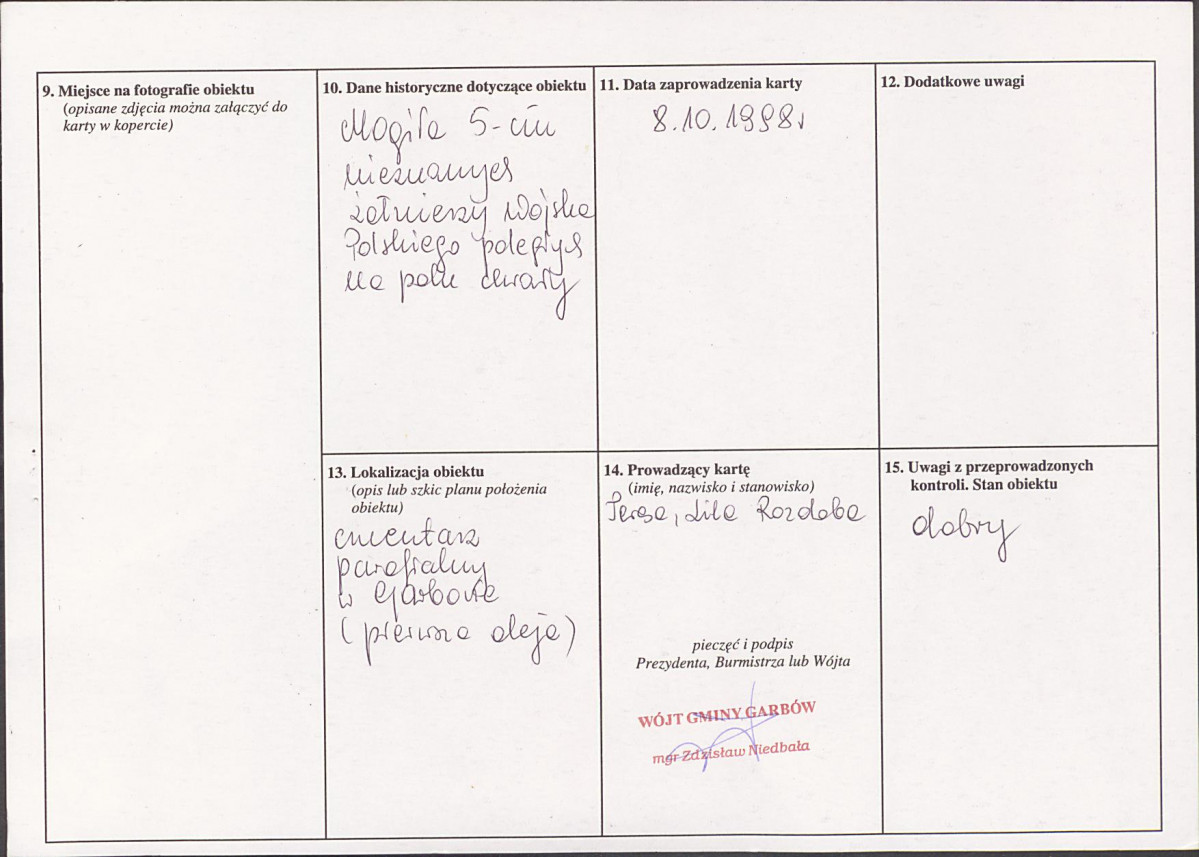 9. Miejsce na fotografie obiektu
(opisane zdjęcia można załączyć do
karty w kopercie)
10. Dane historyczne dotyczące obiektu
Mogiła 5-ciu
nieznanych
żołnierzy Wojska
Polskiego poległych
na polu chwały
11. Data zaprowadzenia karty
8.10.1998r
12. Dodatkowe uwagi
13. Lokalizacja obiektu
(opis lub szkic planu położenia
obiektu)
cmentarz
parafialny
w Garbowie
(pierwsza aleja)
14. Prowadzący kartę
(imię, nazwisko i stanowisko)
Teresa, Lila Rozdoba
pieczęć i podpis
Prezydenta, Burmistrza lub Wójta
WÓJT GMINY GARBÓW
mgr Zdzisław Niedbała
15. Uwagi z przeprowadzonych
kontroli. Stan obiektu
dobry